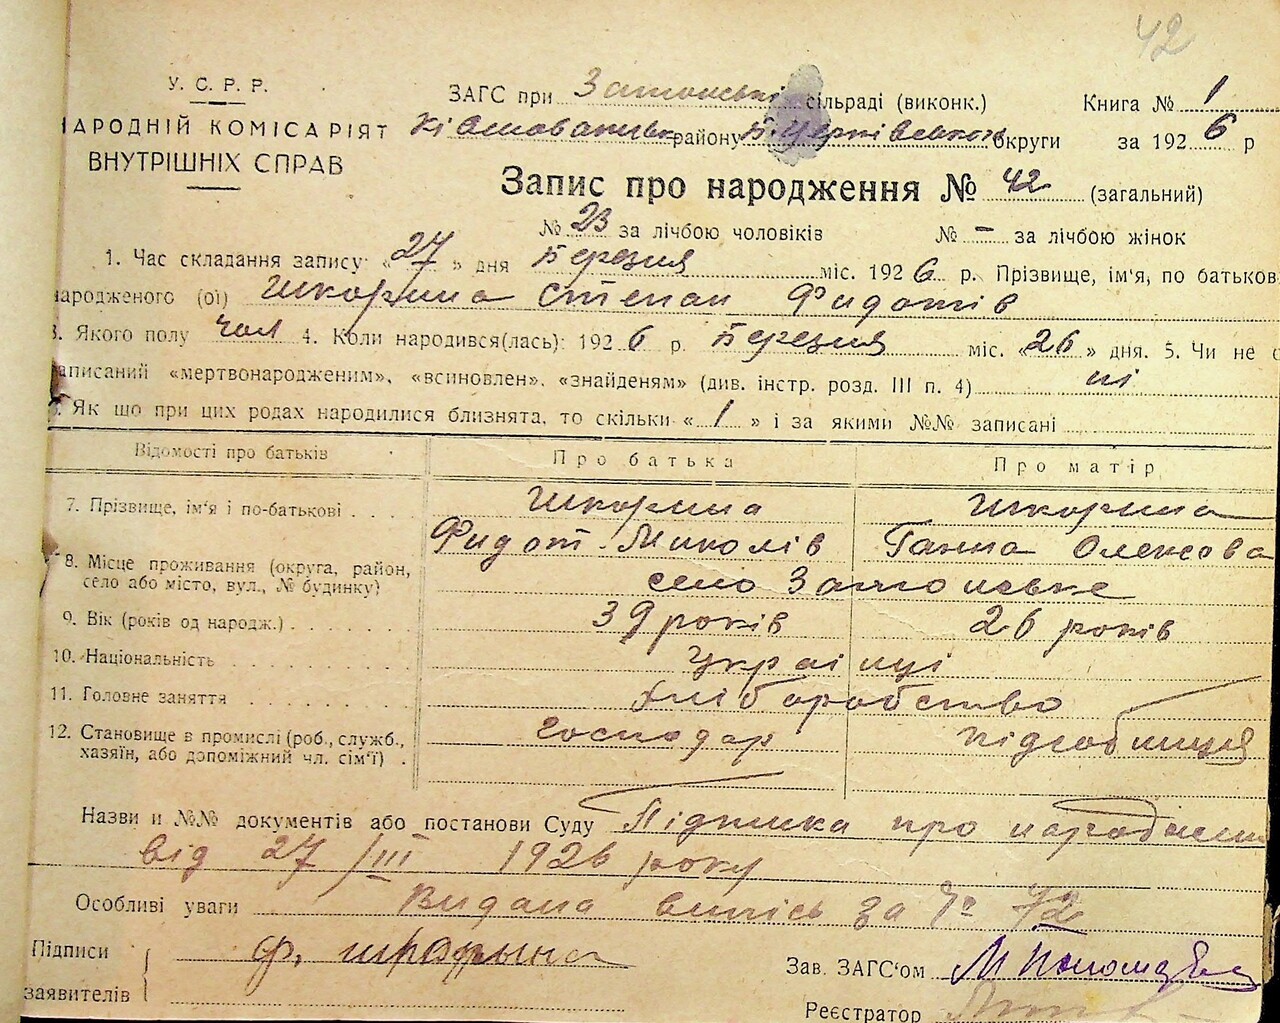 42
У. С. Р. Р.
НАРОДНІЙ КОМІСАРІЯТ
ВНУТРІШНІХ СПРАВ
ЗАГС при Затонські сільраді (виконк.) Книга № 1
району Б. Церківської округи за 1926 р
Запис про народження № 42 (загальний)
№ 23 за лічбою чоловіків № – за лічбою жінок
1. Час складання запису: «27» дня Березня міс. 1926 р. Прізвище, ім'я, по батьков
народженого (ої) Шкорина Степан Фидотів
3. Якого полу чол 4. Коли народився(лась): 1926 р. Березня міс. «26» дня. 5. Чи не
записаний «мертвонародженим», «всиновлен», «знайденям» (див. інстр. розд. III п. 4) ні
6. Як що при цих родах народилися близнята, то скільки «1» і за якими №№ записані
Відомості про батьків Про батька Про матір
7. Прізвище, ім'я і по-батькові Шкорина Шкорина
Фидот Миколів Ганна Олексова
8. Місце проживання (округа, район,
село або місто, вул., № будинку) село Затонське
9. Вік (років од народж.) 39 років 26 років
10. Національність Українці
11. Головне заняття Хліборобство
12. Становище в промислі (роб., служб.,
хазяїн, або допоміжний чл. сім'ї) господар підсобниця
Назви и №№ документів або постанови Суду Підписка про народження
від 27/III 1926 року
Особливі уваги Видана випись за № 42
Підписи
заявителів
Ф. Шкорына
Зав. ЗАГС'ом
Реєстратор